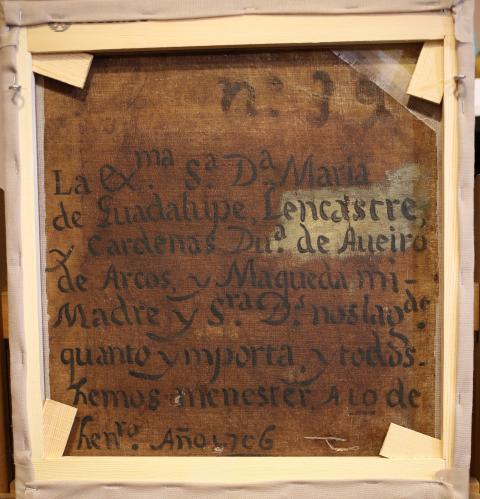 nº 39
La Exma. Sa. Da. Maria
de Guadalupe, Lencastre,
y Cardenas Dua. de Aueiro
de Arcos, y Maqueda mi-
Madre y Sra. Ds. nos la gde.
quanto ymporta, y todos-
hemos menester, A 10 de
henro. Año 1706